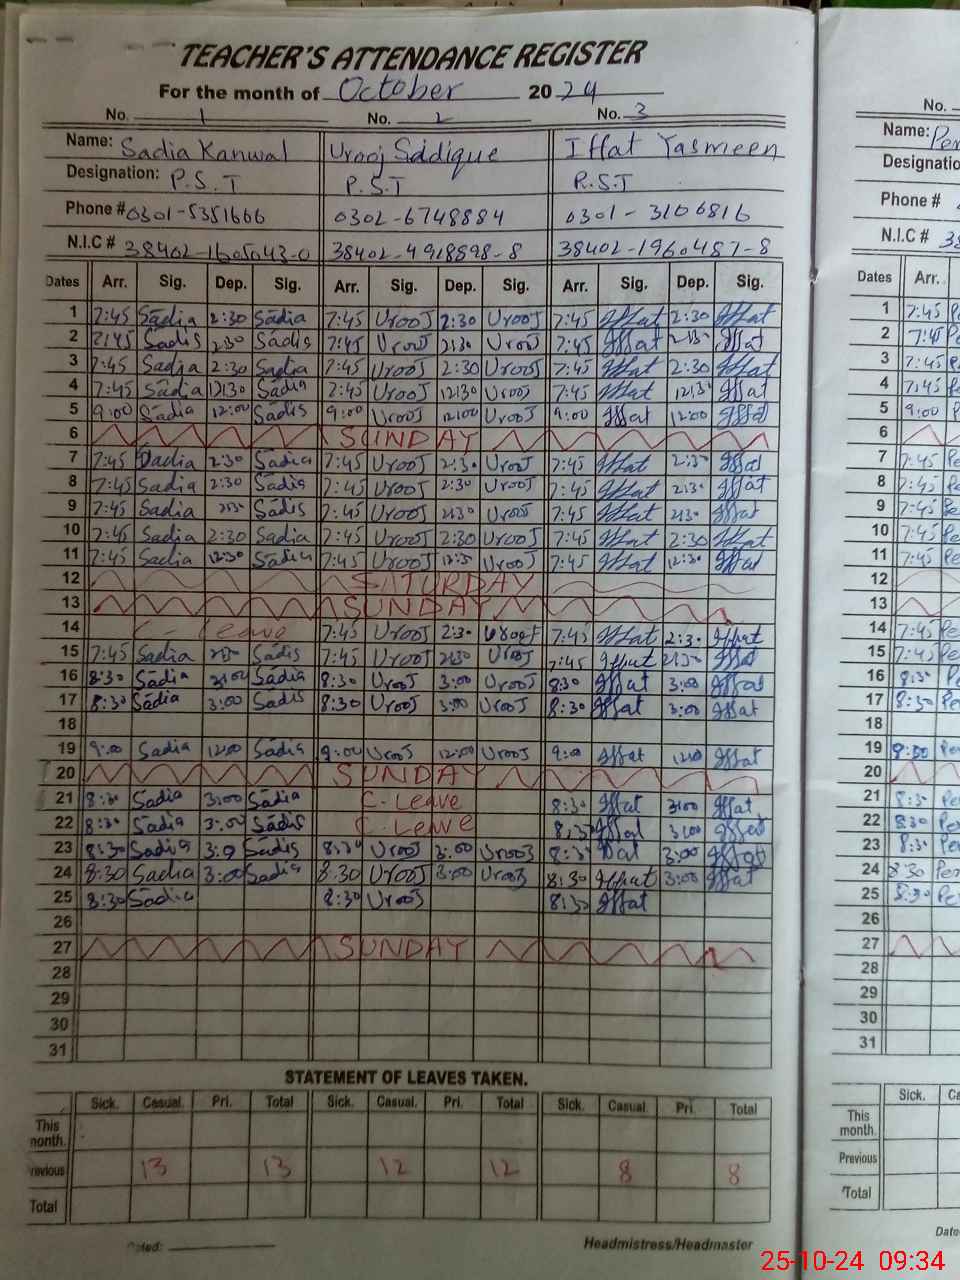 TEACHER'S ATTENDANCE REGISTER
For the month of October 2024
No. 1 No. 2 No. 3
Name: Sadia Kanwal Urooj Siddique Iffat Yasmeen
Designation: P.S.T P.S.T P.S.T
Phone # 0301-5351666 0302-6748884 0301-3106816
N.I.C # 38402-1605043-0 38402-4918898-8 38402-1960487-8
Dates Arr. Sig. Dep. Sig. Arr. Sig. Dep. Sig. Arr. Sig. Dep. Sig.
1 7:45 Sadia 2:30 Sadia 7:45 Urooj 2:30 Urooj 7:45 Iffat 2:30 Iffat
2 7:45 Sadia 2:30 Sadia 7:45 Urooj 2:30 Urooj 7:45 Iffat 2:30 Iffat
3 7:45 Sadia 2:30 Sadia 7:45 Urooj 2:30 Urooj 7:45 Iffat 2:30 Iffat
4 7:45 Sadia 12:30 Sadia 7:45 Urooj 12:30 Urooj 7:45 Iffat 12:30 Iffat
5 9:00 Sadia 12:00 Sadia 9:00 Urooj 12:00 Urooj 9:00 Iffat 12:00 Iffat
6 SUNDAY
7 7:45 Sadia 2:30 Sadia 7:45 Urooj 2:30 Urooj 7:45 Iffat 2:30 Iffat
8 7:45 Sadia 2:30 Sadia 7:45 Urooj 2:30 Urooj 7:45 Iffat 2:30 Iffat
9 7:45 Sadia 2:30 Sadia 7:45 Urooj 2:30 Urooj 7:45 Iffat 2:30 Iffat
10 7:45 Sadia 2:30 Sadia 7:45 Urooj 2:30 Urooj 7:45 Iffat 2:30 Iffat
11 7:45 Sadia 12:30 Sadia 7:45 Urooj 12:30 Urooj 7:45 Iffat 12:30 Iffat
12 SATURDAY
13 SUNDAY
14 C-Leave 7:45 Urooj 2:30 Urooj 7:45 Iffat 2:30 Iffat
15 7:45 Sadia 2:30 Sadia 7:45 Urooj 2:30 Urooj 7:45 Iffat 2:30 Iffat
16 8:30 Sadia 3:00 Sadia 8:30 Urooj 3:00 Urooj 8:30 Iffat 3:00 Iffat
17 8:30 Sadia 3:00 Sadia 8:30 Urooj 3:00 Urooj 8:30 Iffat 3:00 Iffat
18
19 9:00 Sadia 12:00 Sadia 9:00 Urooj 12:00 Urooj 9:00 Iffat 12:00 Iffat
20 SUNDAY
21 8:30 Sadia 3:00 Sadia C-Leave 8:30 Iffat 3:00 Iffat
22 8:30 Sadia 3:00 Sadia C-Leave 8:30 Iffat 3:00 Iffat
23 8:30 Sadia 3:0 Sadis 8:30 Urooj 3:00 Urooj 8:30 3:00 Iffat
24 8:30 Sadia 3:00 Sadia 8:30 Urooj 3:00 Urooj 8:30 Iffat 3:00 Iffat
25 8:30 Sadia 8:30 Urooj 8:30 Iffat
26
27 SUNDAY
28
29
30
31
STATEMENT OF LEAVES TAKEN.
Sick. Casual. Pri. Total Sick. Casual. Pri. Total Sick. Casual. Pri. Total
This month.
revious 13 13 12 12 8 8
Total
Dated: Headmistress/Headmaster
No.
Name: Per
Designation
Phone #
N.I.C # 38
Dates Arr.
1 7:45 Pe
2 7:45 P
3 7:45 P
4 7:45 P
5 9:00 P
6
7 7:45 Pe
8 7:45 Pe
9 7:45 Pe
10 7:45 Pe
11 7:45 Pe
12
13
14 7:45 Pe
15 7:45 Pe
16 8:30 P
17 8:30 Pe
18
19 9:00 Per
20
21 8:30 Per
22 8:30 Per
23 8:30 Per
24 8:30 Per
25 8:30 Per
26
27
28
29
30
31
Sick. Ca
This month.
Previous
Total
Date
25-10-24 09:34